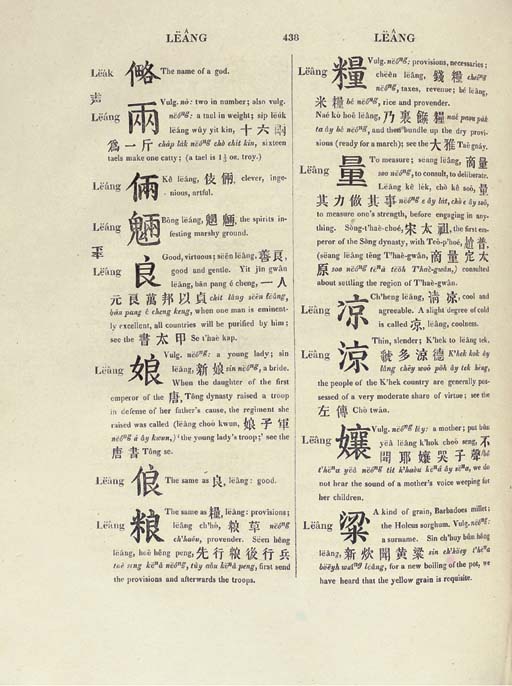 LËÂNG 438 LËÂNG
Lëák 䂮 The name of a god.
声
Lëáng 兩 Vulg. nō: two in number; also vulg.
nëōⁿᵍ: a tael in weight; sip lëúk
lëáng wûy yit kin, 十六兩
為一斤 chap lak nëōⁿᵍ chò chit kin, sixteen
taels make one catty; (a tael is 1⅓ oz. troy.)
Lëáng 倆 Kē lëâng, 伎倆, clever, inge-
nious, artful.
Lëáng 魎 Bōng lëáng, 魍魎, the spirits in-
festing marshy ground.
平
Lëâng 良 Good, virtuous; sëēn lëâng, 善良,
good and gentle. Yit jîn gwân
lëâng, bān pang é cheng, 一人
元良萬邦以貞 chit lâng sëēn lëâng,
bān pang é cheng keng, when one man is eminent-
ly excellent, all countries will be purified by him;
see the 書太甲 Se t'haè kap.
Lëâng 娘 Vulg. nëôⁿᵍ: a young lady; sin
lëâng, 新娘 sin nëôⁿᵍ, a bride.
When the daughter of the first
emperor of the 唐, Tông dynasty raised a troop
in defense of her father's cause, the regiment she
raised was called (lëâng choó kwun, 娘子軍
nëôⁿᵍ á ây kwun,) 'the young lady's troop;' see the
唐書 Tông se.
Lëâng 俍 The same as 良, lëâng: good.
Lëâng 粮 The same as 糧, lëâng: provisions;
lëâng ch'hó, 粮草 nëôⁿᵍ
ch'haóu, provender. Sëen hêng
lëâng, hoē hêng peng, 先行粮後行兵
taē seng këⁿâ nëôⁿᵍ, tûy aōu këⁿâ peng, first send
the provisions and afterwards the troops.
Lëâng 糧 Vulg. nëôⁿᵍ: provisions, necessaries;
chëên lëâng, 錢糧 cheîⁿᵍ
nëôⁿᵍ, taxes, revenue; bé lëâng,
米糧 bé nëôⁿᵍ, rice and provender.
Naé kò hoê lëâng, 乃裹餱糧 naé paou p'ak
ta ây bé nëôⁿᵍ, and then bundle up the dry provi-
sions (ready for a march); see the 大雅 Taē gnáy.
Lëâng 量 To measure; seang lëâng, 商量
soo nëôⁿᵍ, to consult, to deliberate.
Lëâng kê lek, chò kê soō, 量
其力做其事 nëôⁿᵍ e ây lát, chò e ây soō,
to measure one's strength, before engaging in any-
thing. Sòng-t'haè-choé, 宋太祖, the first em-
peror of the Sòng dynasty, with Teō-p'hoé, 趙普,
(sëang lëâng tēng T'haè-gwân, 商量定太
原 soo nëôⁿᵍ tēⁿā tëōh T'haè-gwân,) consulted
about settling the region of T'haè-gwân.
Lëâng 凉 Ch'heng lëâng, 清凉, cool and
agreeable. A slight degree of cold
is called 凉, lëâng, coolness.
Lëâng 涼 Thin, slender; K'hek to lëâng tek,
虢多涼德 K'hek kok ây
lâng chēy woō pōh ây tek hēng,
the people of the K'hek country are generally pos-
sessed of a very moderate share of virtue; see the
左傳 Chò twān.
Lëâng 孃 Vulg. nëôⁿᵍ léy: a mother; put bûn
yëâ lëâng k'hok choó seng, 不
聞耶孃哭子聲 bô
t'hëⁿa yëâ nëôⁿᵍ tít k'haòu këⁿá ây sëⁿa, we do
not hear the sound of a mother's voice weeping for
her children.
Lëâng 粱 A kind of grain, Barbadoes millet;
the Holcus sorghum. Vulg. nëôⁿᵍ:
a surname. Sin ch'huy bûn hông
lëâng, 新炊聞黄粱 sin ch'höey t'hëⁿa
böēyh wuîⁿᵍ lëâng, for a new boiling of the pot, we
have heard that the yellow grain is requisite.